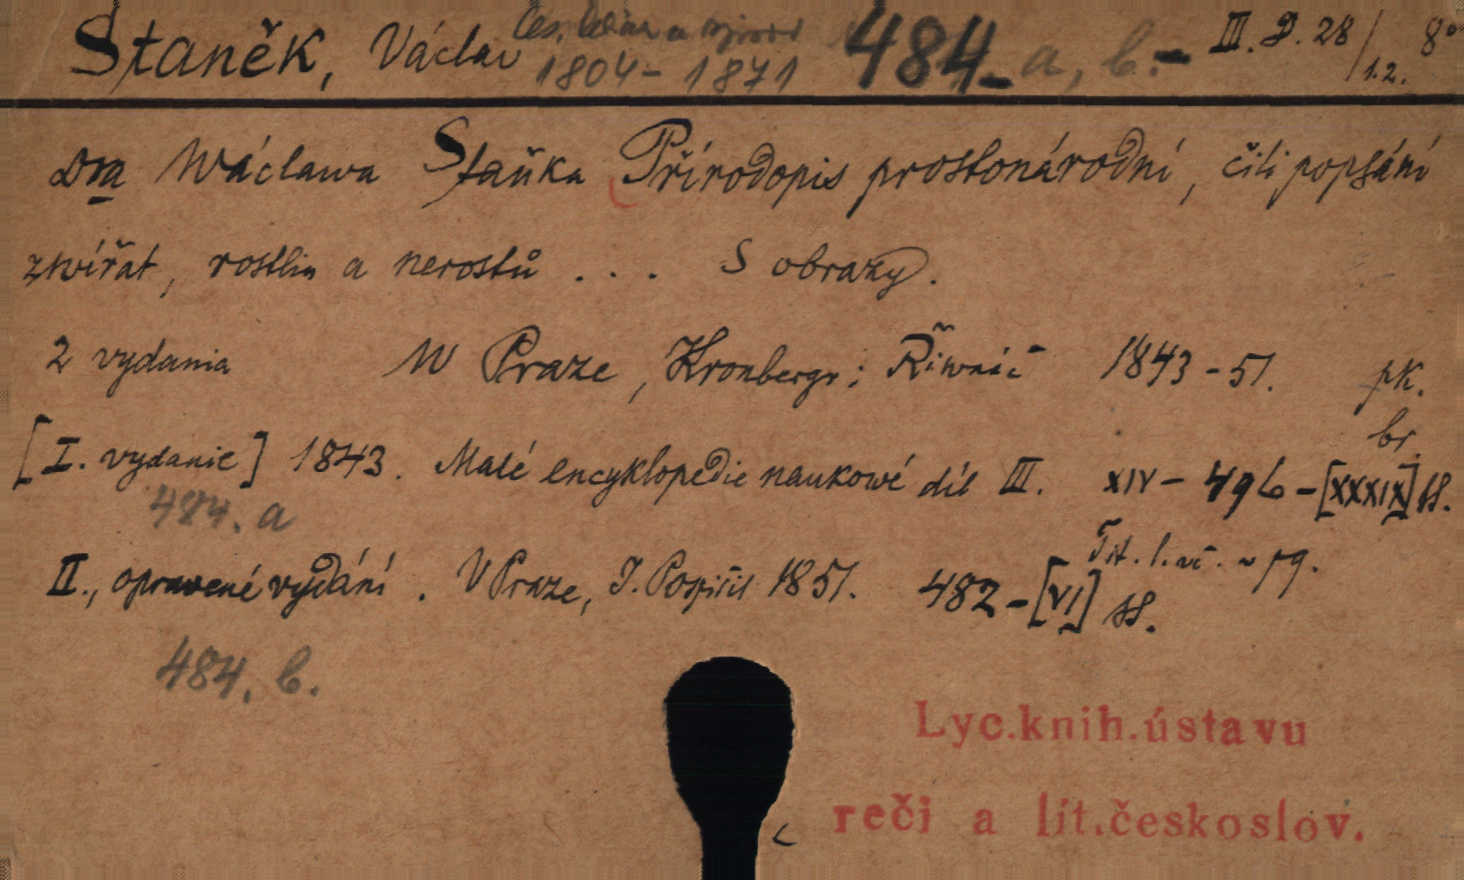 Staněk, Václav 1804-1871 484-a, b.- III. D. 28/1.2. 8°
Dra Wáclawa Staňka Přírodopis prostonárodní, čili popsání
zwířat, rostlin a nerostů . . . S obrazy.
2 vydania W Praze, Kronbergr; Řiwnáč 1843-51. pk.
br.
[I. vydanie] 1843. Malé encyklopedie naukowé díl III. XIV-496-[XXXIX] ss.
484. a
Tit. l.
II., opravené vydání. V Praze, J. Pospíšil 1851. 482-[VI] ss.
484. b.
Lyc.knih.ústavu
reči a lit.českoslov.